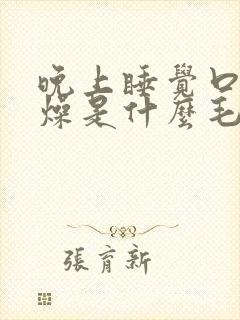 晚上睡覺口
燥是什麼毛
張育新